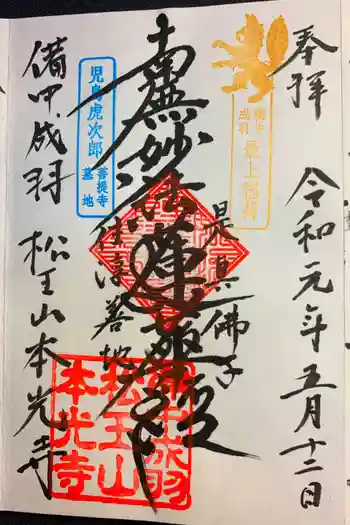 奉拝
令和元年五月十二日
備中
成羽
最上稲荷
是真佛子
南無妙法蓮華経
住淳善地
児島虎次郎
菩提寺
墓地
備中成羽
松王山
本光寺
備中成羽 松王山本光寺